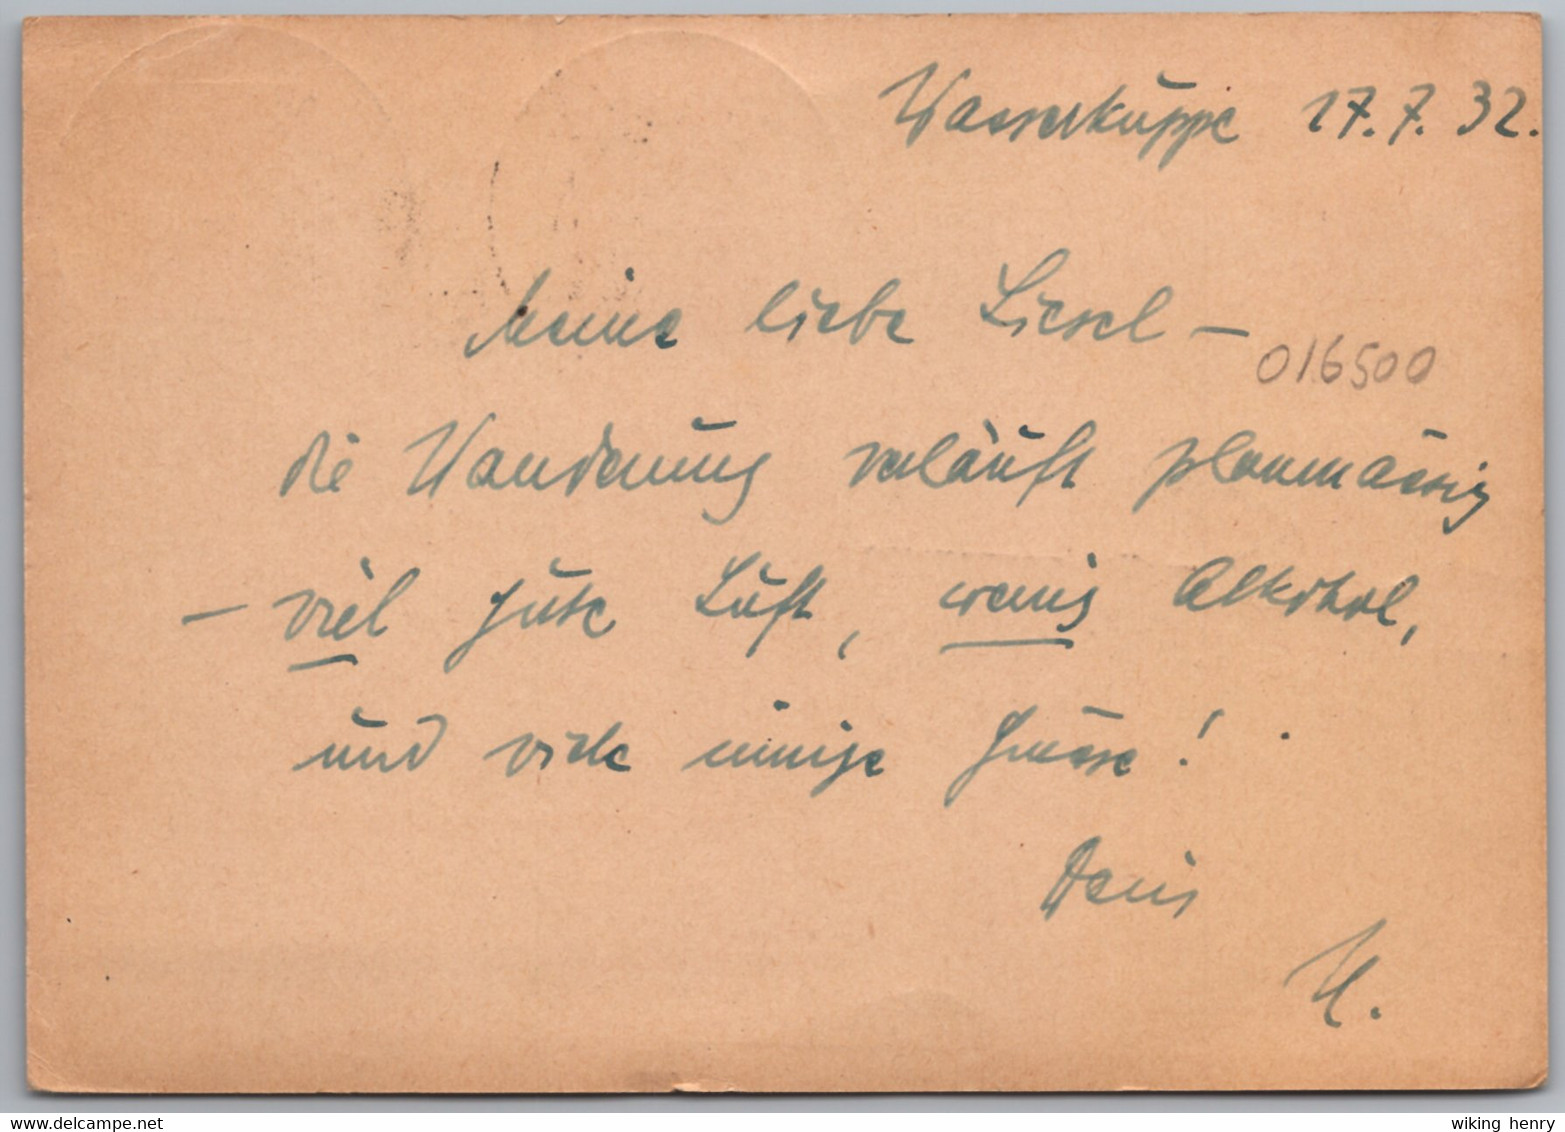 Wasserkuppe 17.7.32.
Meine liebe Liesel –
016500
die Wanderung verläuft planmässig
– viel gute Luft, wenig Alkohol,
und viele innige Grüsse!
Dein
H.
www.delcampe.net
wiking henry